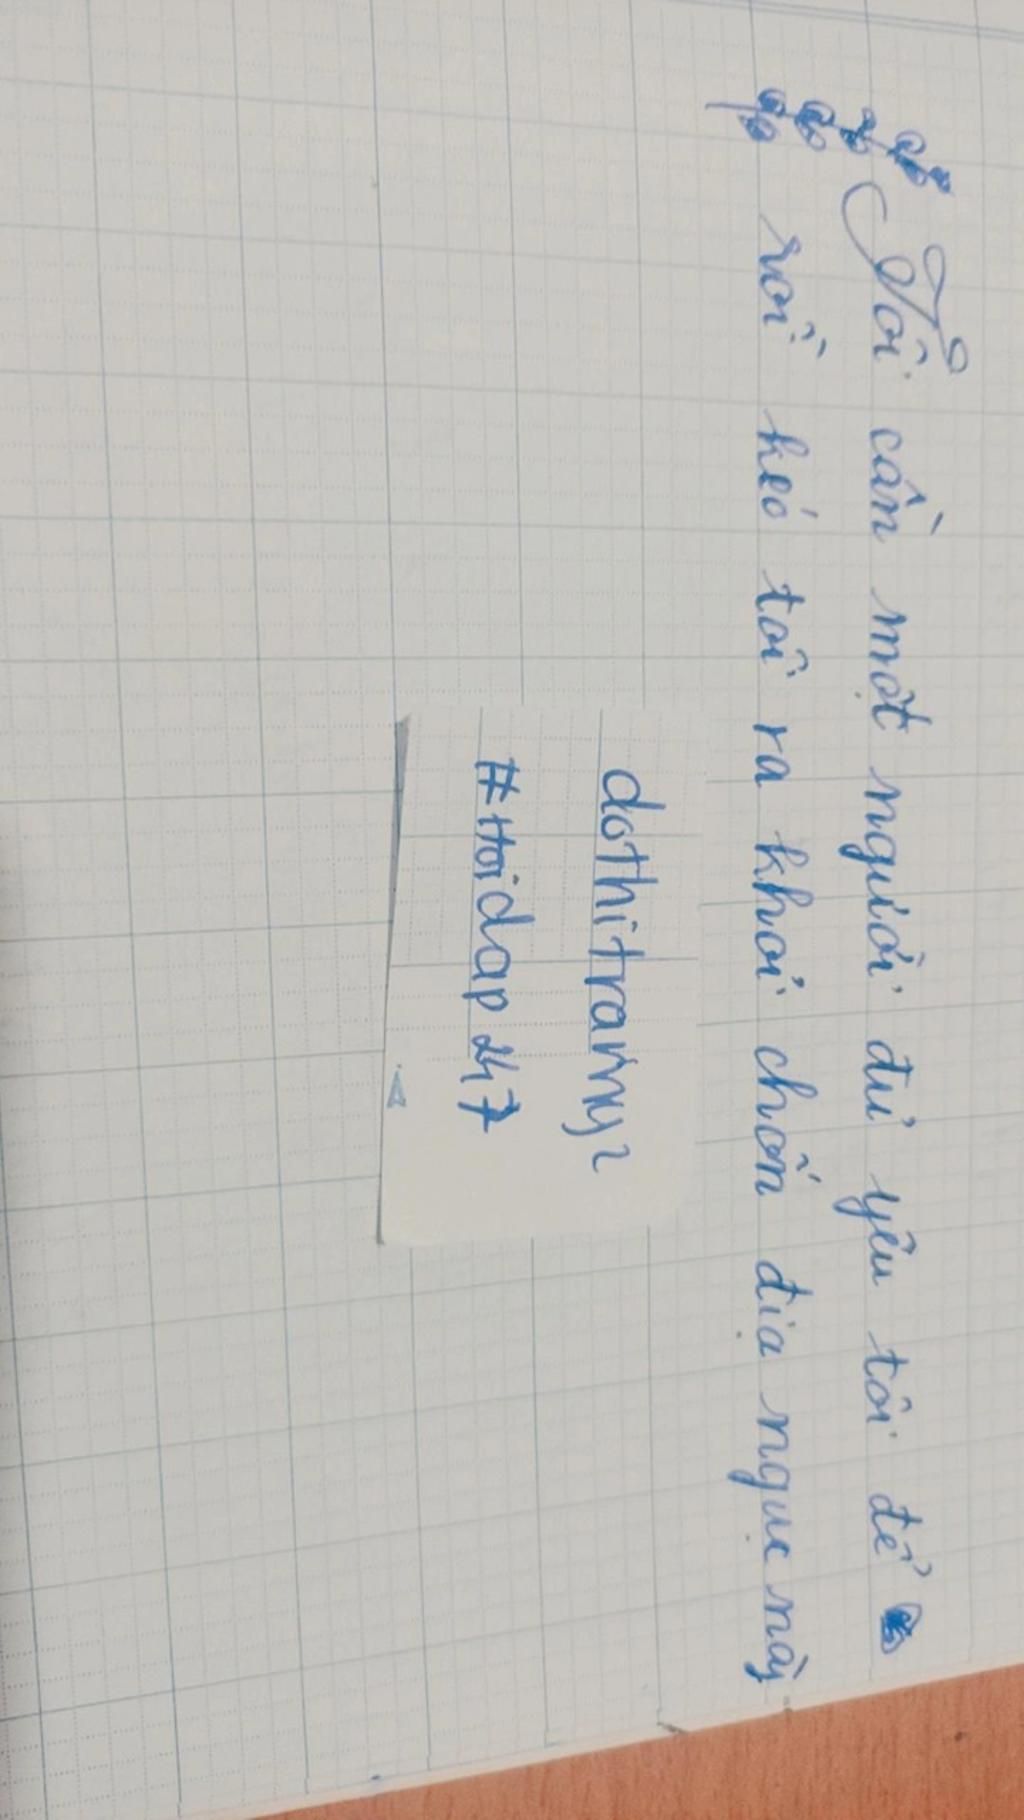 Tôi cần một người đủ yêu tôi để
rồi kéo tôi ra khỏi chốn địa ngục này
dothitramy2
#Hoidap247